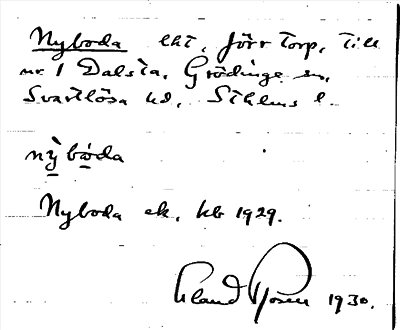 Nyboda lht, förr torp, till
nr 1 Dalsta, Grödinge sn,
Svartlösa hd, Sthlms l.
nỳ bóda
Nyboda ek. kb 1929.
Rosén 1930.